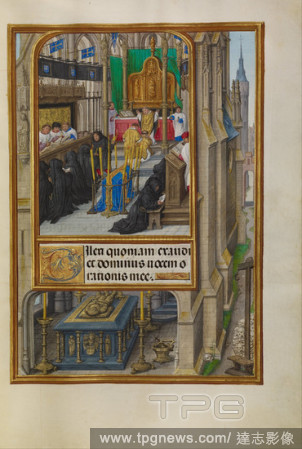 Ilexi quoniam exaudi
et dominus vocem o
rationis mee.
TPG
www.tpgnews.com/ 達志影像